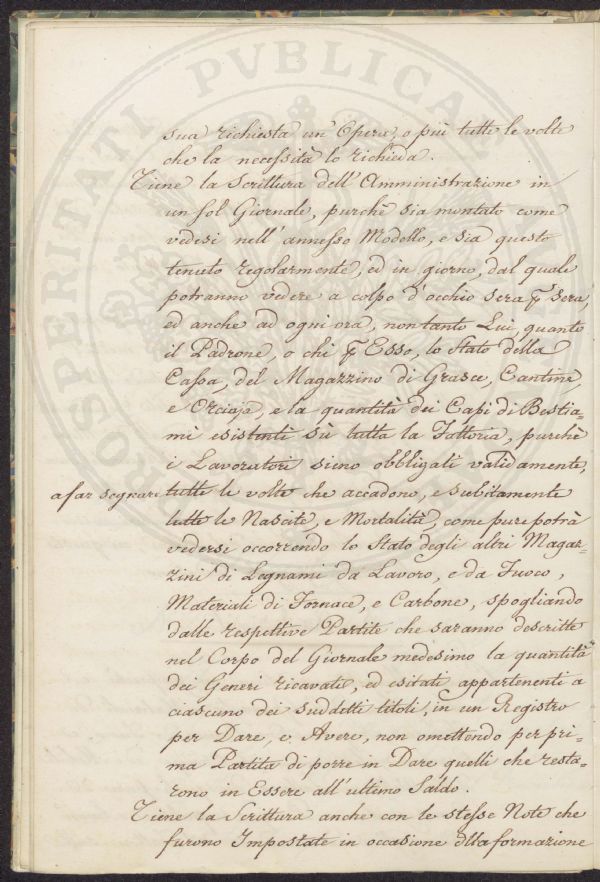 sua richiesta un' Opera, o più tutte le volte
che la necessità lo richieda.
Tiene la Scrittura dell' Amministrazione in
un sol Giornale, purchè sia montato come
vedesi nell' annesso Modello, e sia questo
tenuto regolarmente, ed in giorno, dal quale
potranno vedere a colpo d'occhio sera p sera,
ed anche ad ogni ora, non tanto Lui, quanto
il Padrone, o chi p Esso, lo Stato della
Cassa, del Magazzino di Grasce, Cantine,
e Orciaje, e la quantità dei Capi di Bestia=
mi esistenti sù tutta la Fattoria, purchè
i Lavoratori sieno obbligati validamente,
a far segnare tutte le volte che accadono, e subitamente
tutte le Nascite, e Mortalità, come pure potrà
vedersi occorrendo lo Stato degli altri Magaz=
zini di Legnami da Lavoro, e da Fuoco,
Materiali di Fornace, e Carbone, spogliando
dalle respettive Partite che saranno descritte
nel Corpo del Giornale medesimo la quantità
dei Generi ricavati, ed esitati appartenenti a
ciascuno dei suddetti titoli, in un Registro
per Dare, e Avere, non omettendo per pri=
ma Partita di porre in Dare quelli che resta=
rono in Essere all' ultimo Saldo.
Tiene la Scrittura anche con le stesse Note che
furono Impostate in occasione dlla formazione
PROSPERITATI PVBLICAE